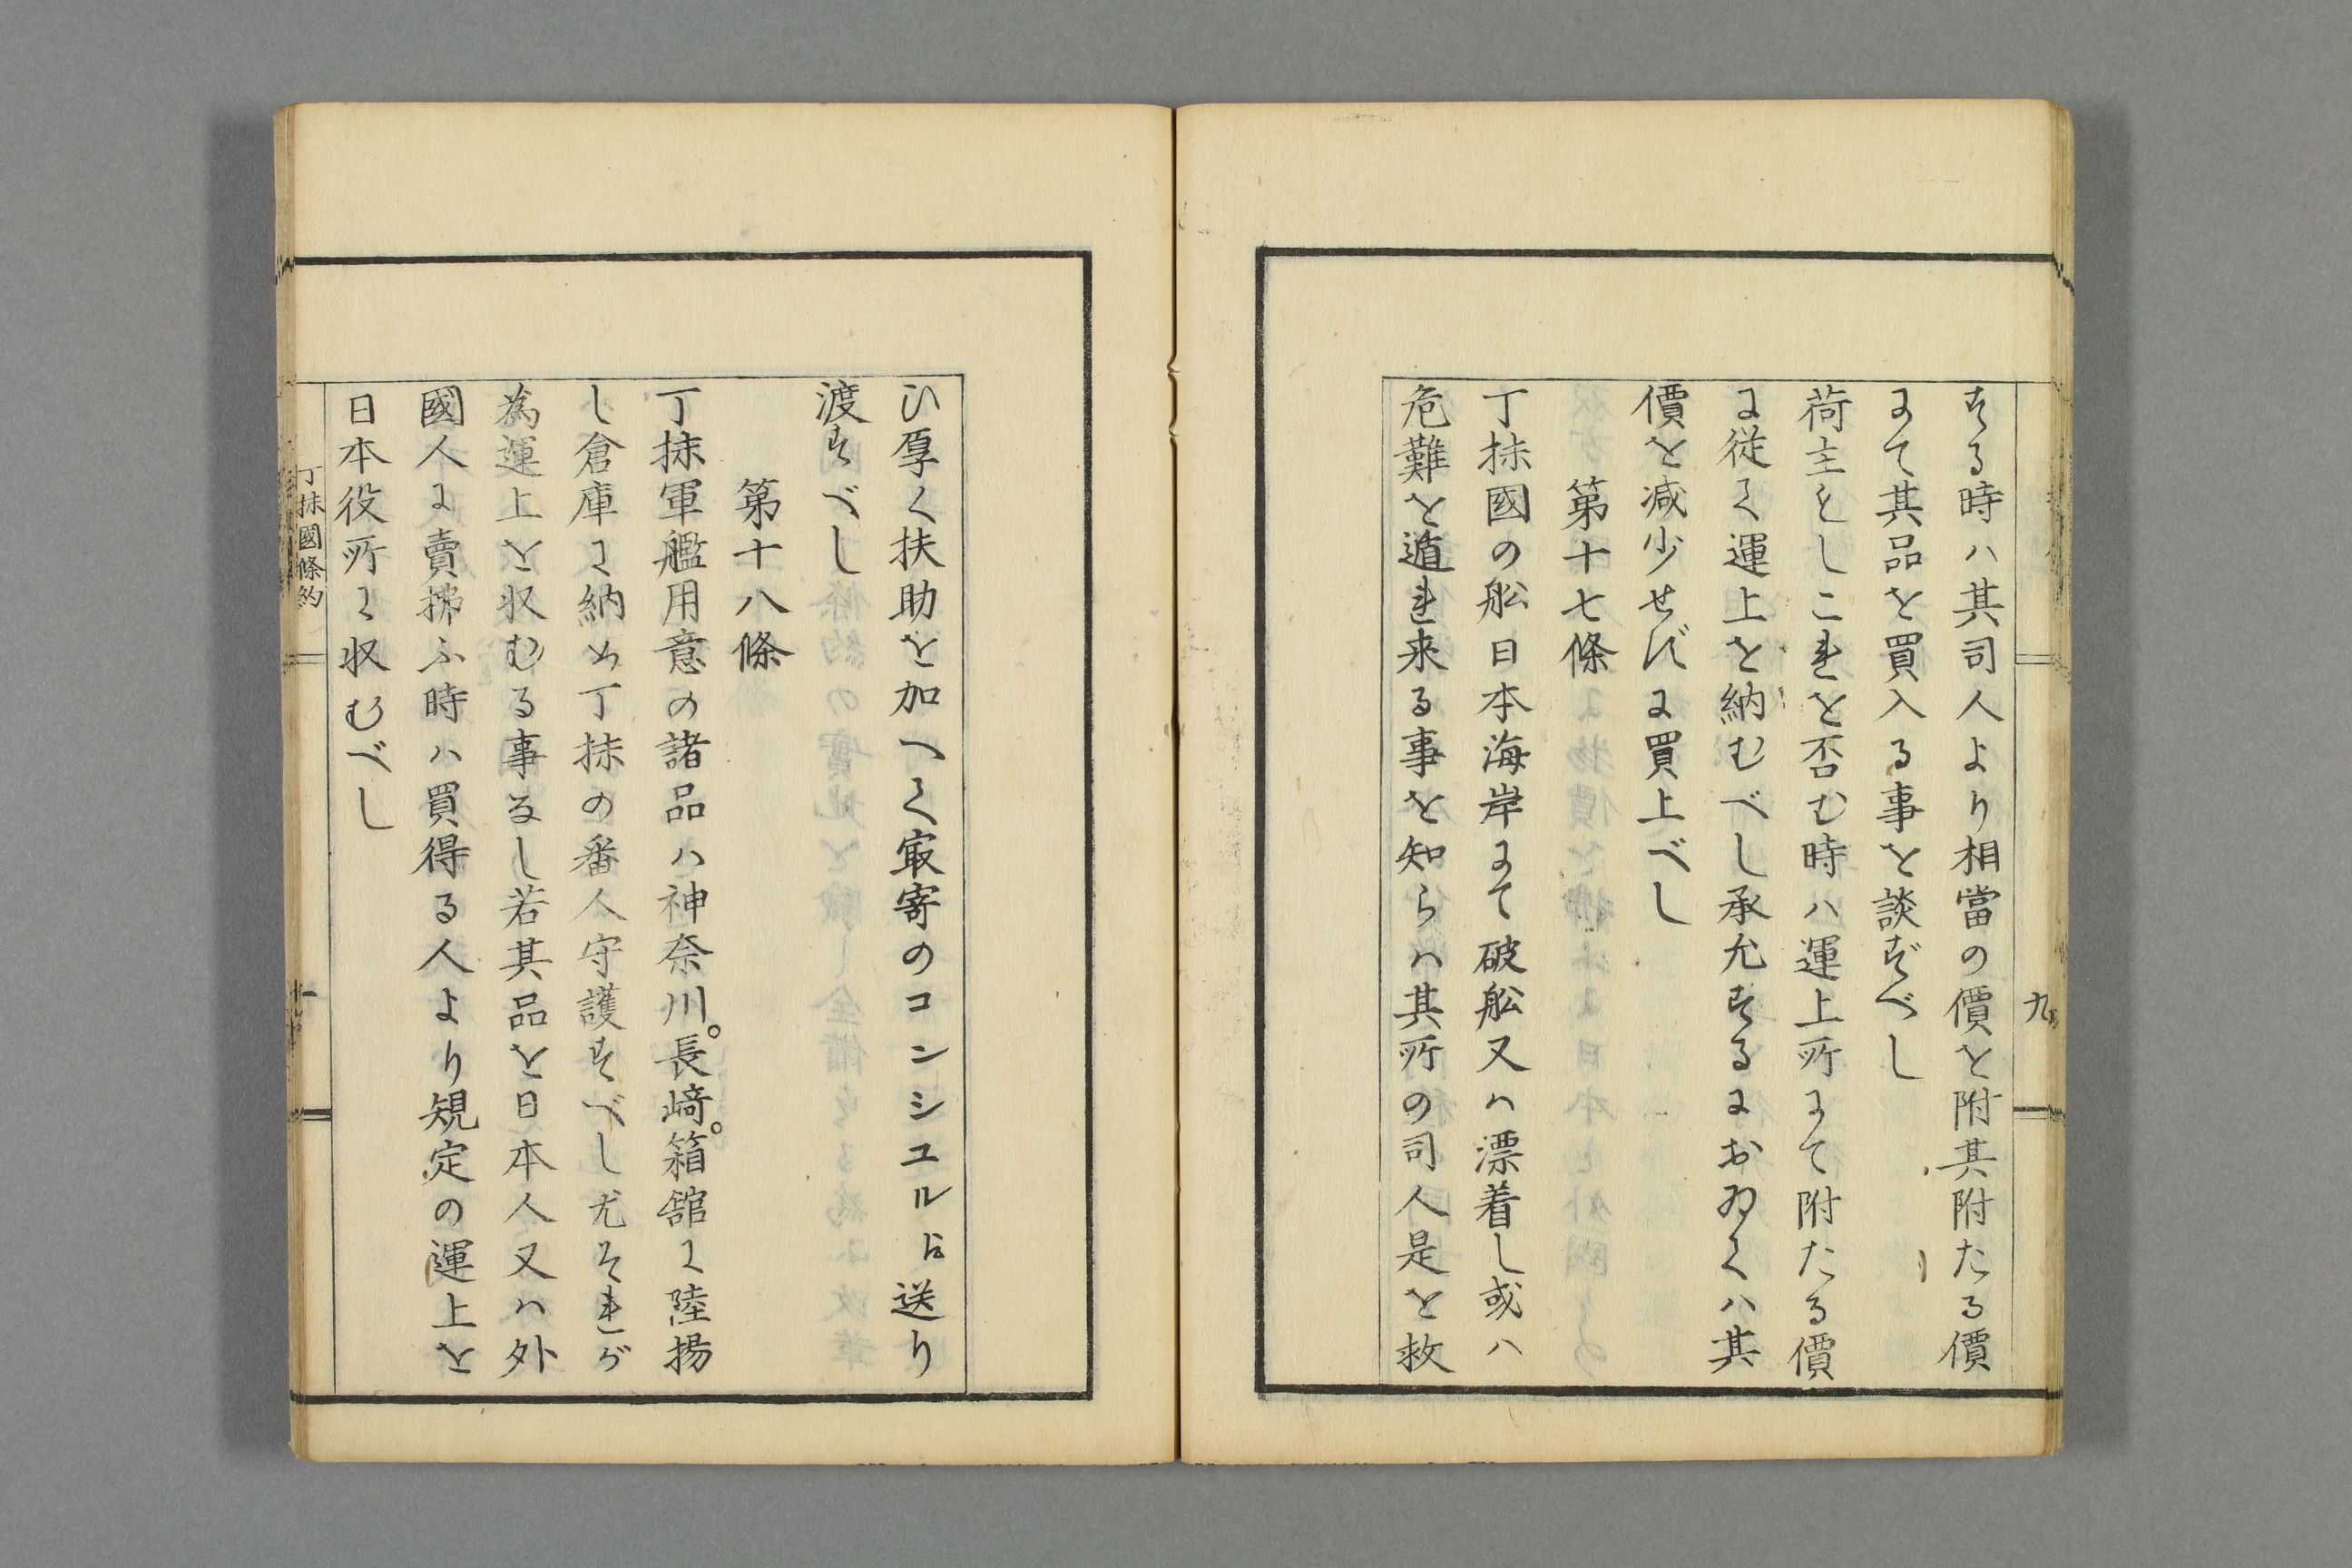 九
する時ハ其司人より相當の價を附其附たる價
にて其品を買入る事を談ずべし
荷主もしこれを否む時ハ運上所にて附たる價
に従て運上を納むべし承允するにおゐてハ其
價を減少せずに買上べし
第十七條
丁抹國の舩日本海岸にて破舩又ハ漂着し或ハ
危難を遁れ来る事を知らハ其所の司人是を救
ひ厚く扶助を加へて㝡寄のコンシユルに送り
渡すべし
第十八條
丁抹軍艦用意の諸品ハ神奈川。長﨑。箱舘に陸揚
し倉庫に納め丁抹の番人守護すべし尤それが
為運上を収むる事なし若其品を日本人又ハ外
國人に賣拂ふ時ハ買得る人より規定の運上を
日本役所に収むべし
丁抹國條約